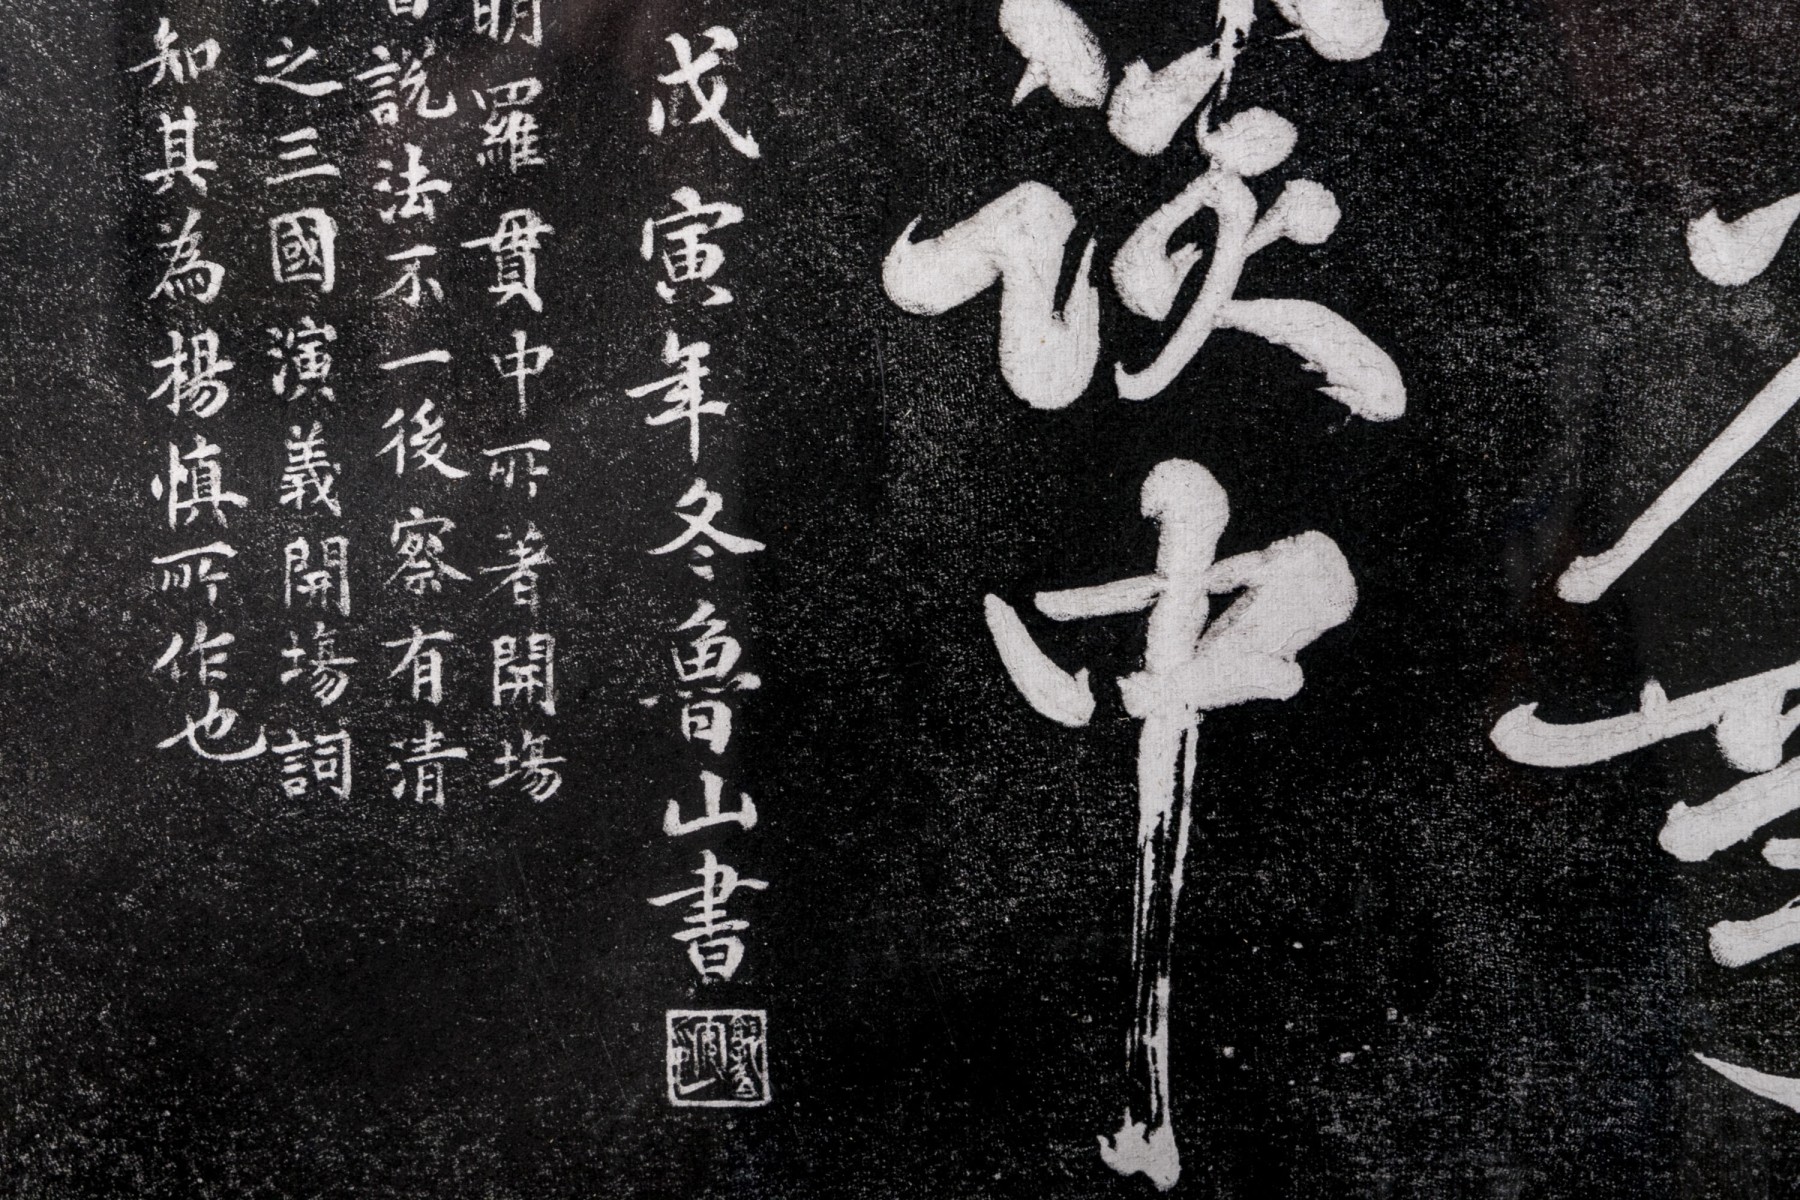 談中
戊寅年冬魯山書
明羅貫中所著開場
說法不一後察有清
之三國演義開場詞
知其為楊慎所作也